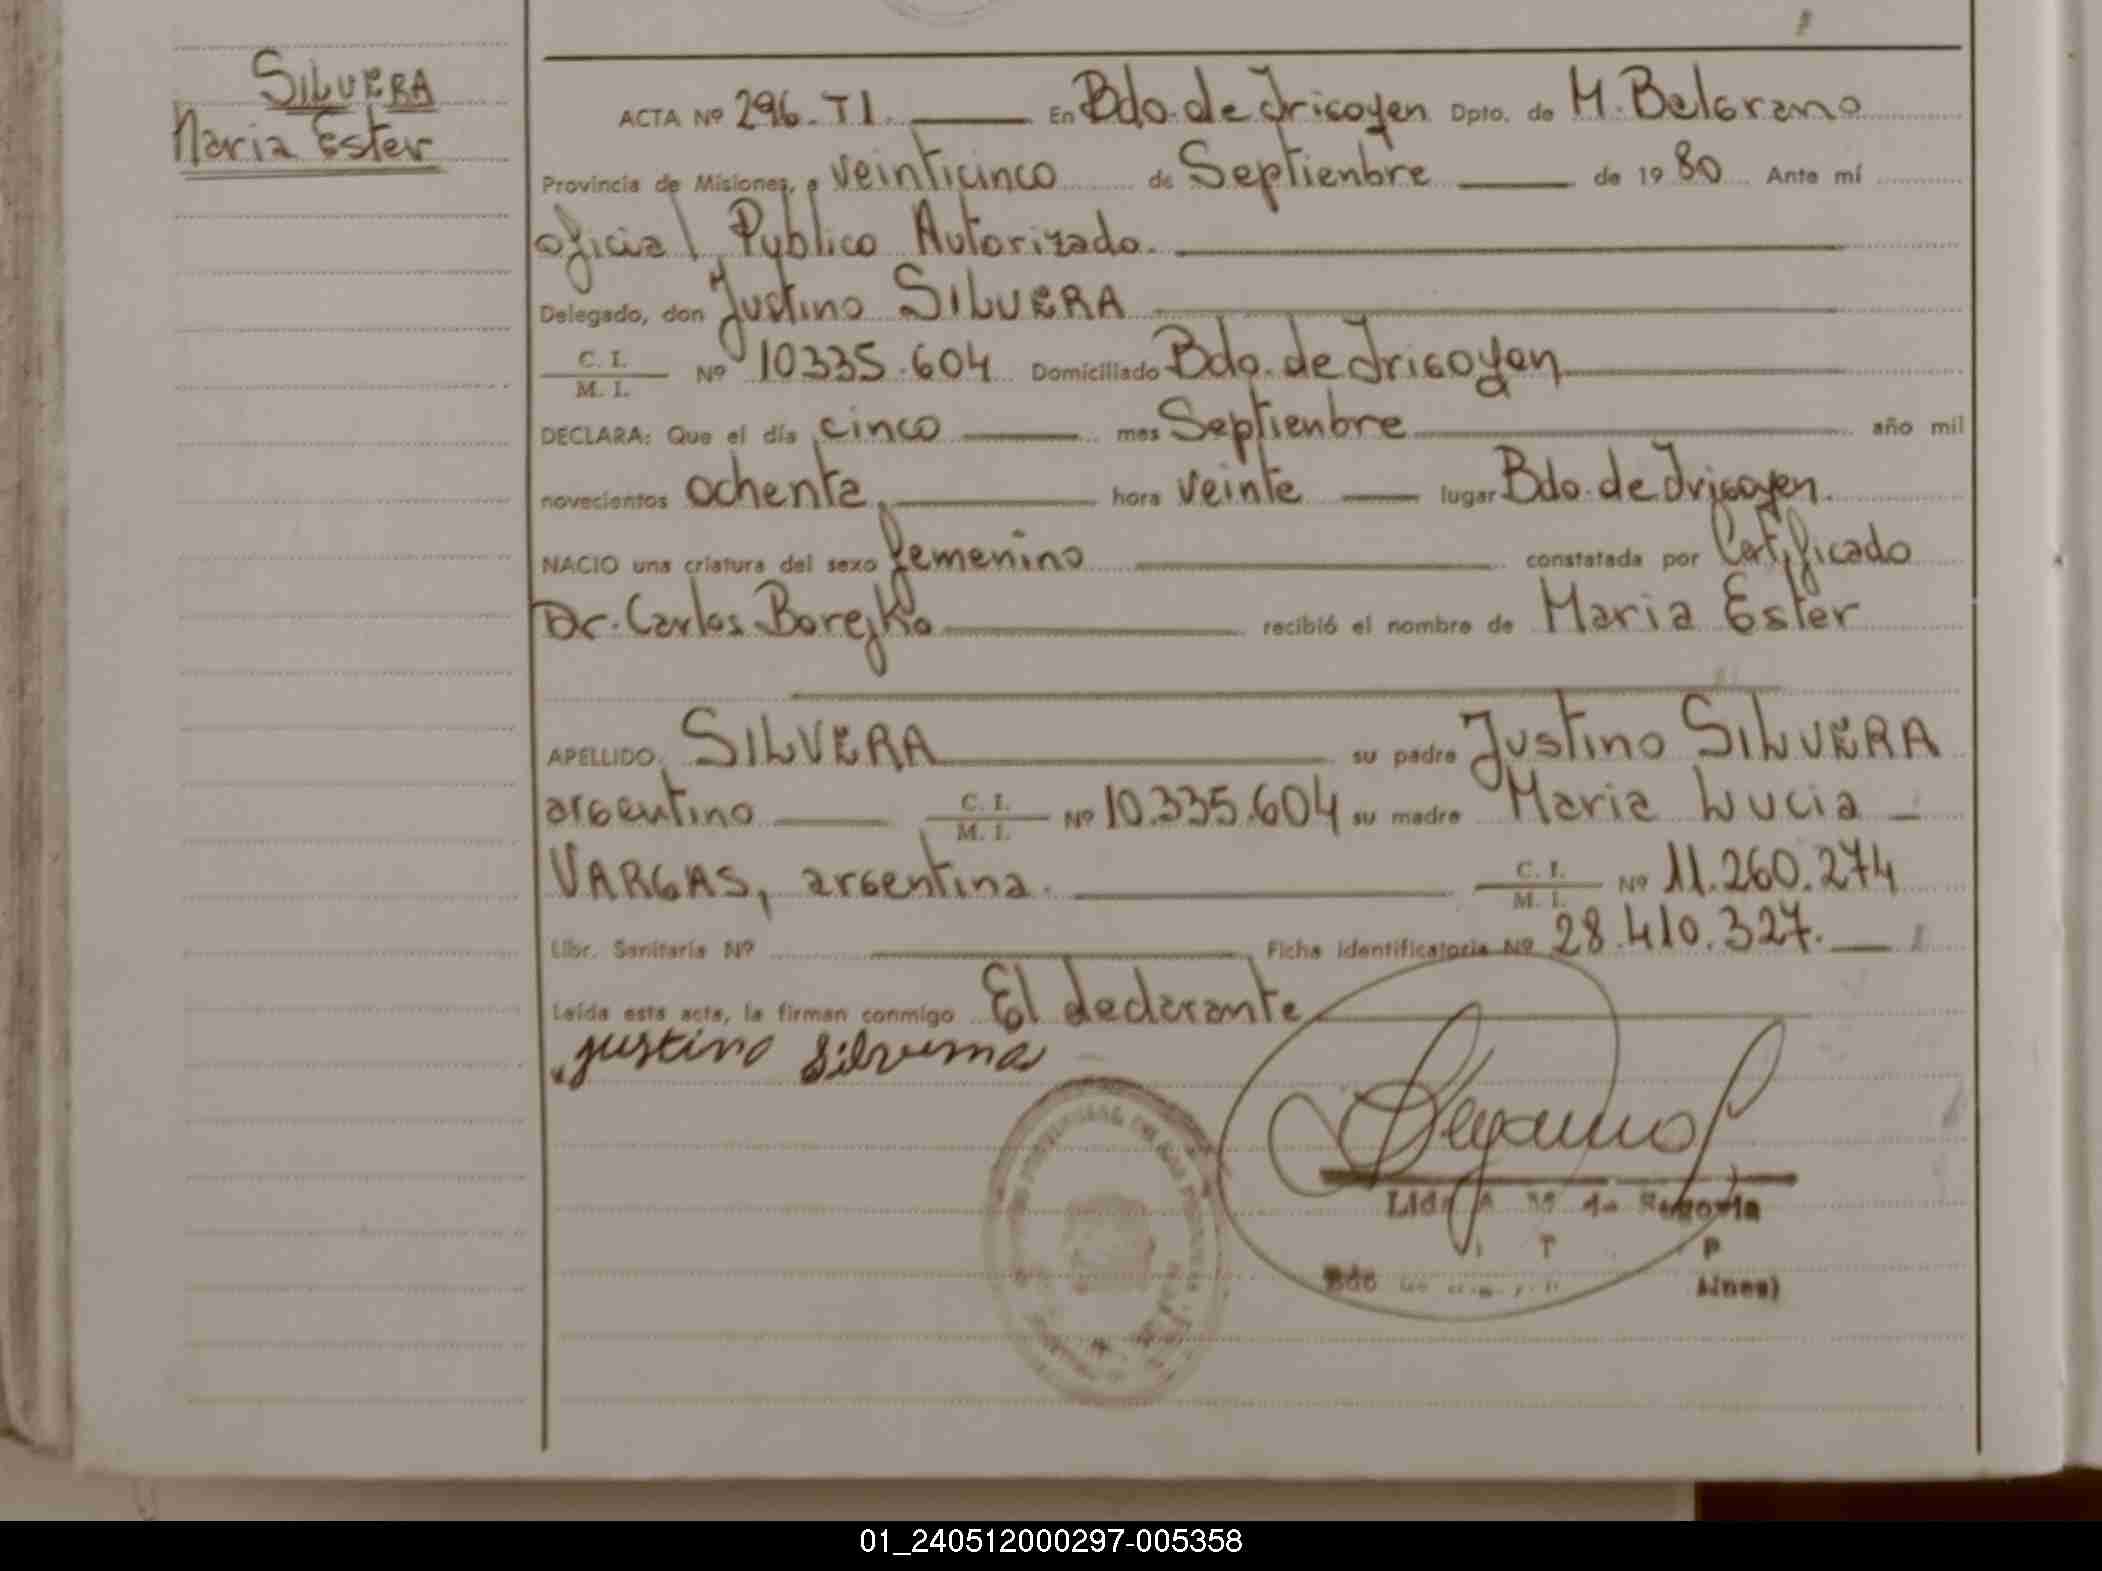 SILVERA
Maria Ester
ACTA Nº 296. TI. En Bdo. de Irigoyen Dpto. de M. Belgrano
Provincia de Misiones, a veinticinco de Septienbre de 1980 Ante mí
oficial Publico Autorizado.
Delegado, don Justino SILVERA
C. I.
M. I. Nº 10335.604 Domiciliado Bdo. de Irigoyen
DECLARA: Que el día cinco mes Septienbre año mil
novecientos ochenta, hora veinte lugar Bdo. de Irigoyen.
NACIO una criatura del sexo femenino constatada por Certificado
Dr. Carlos Borejko recibió el nombre de Maria Ester
APELLIDO SILVERA su padre Justino SILVERA
argentino C. I.
M. I. Nº 10.335.604 su madre Maria Lucia
VARGAS, argentina. C. I.
M. I. Nº 11.260.274
Libr. Sanitaria Nº Ficha identificatoria Nº 28.410.327.
Leída esta acta, la firman conmigo El declarante
justino silvema
de Segovia
Bdo
01_240512000297-005358